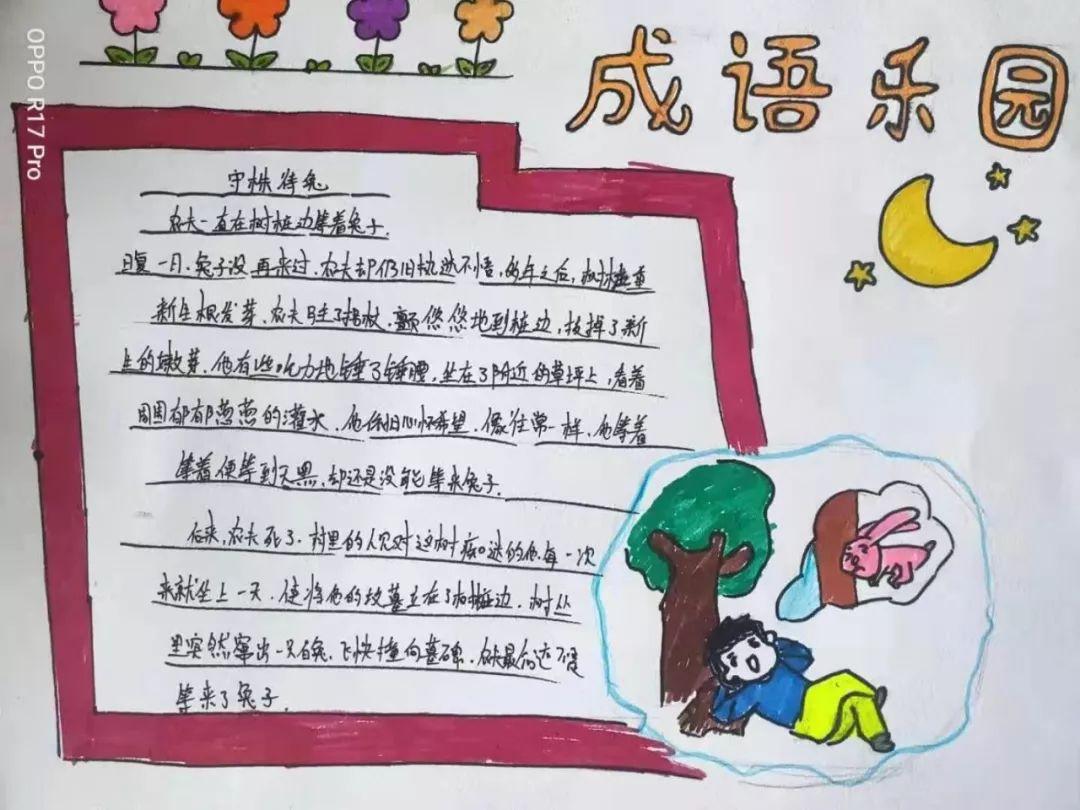 成语乐园
OPPO R17 Pro
守株待兔
农夫一直在树桩边等着兔子.
日复一日,兔子没再来过,农夫却仍旧执迷不悟,多年之后,树桩重
新生根发芽,农夫拄了拐杖,颤悠悠地到桩边,拔掉了新
生的嫩芽,他有些吃力地锤了锤腰,坐在了附近的草坪上,看着
周围郁郁葱葱的灌木,他依旧心怀希望,像往常一样,他等着
等着便等到天黑,却还是没能等来兔子.
后来,农夫死了.村里的人因对这树痴迷的他每一次
来就坐上一天,便将他的坟墓立在了树桩边,树丛
里突然窜出一只白兔,飞快撞向墓碑,农夫最后还
等来了兔子.